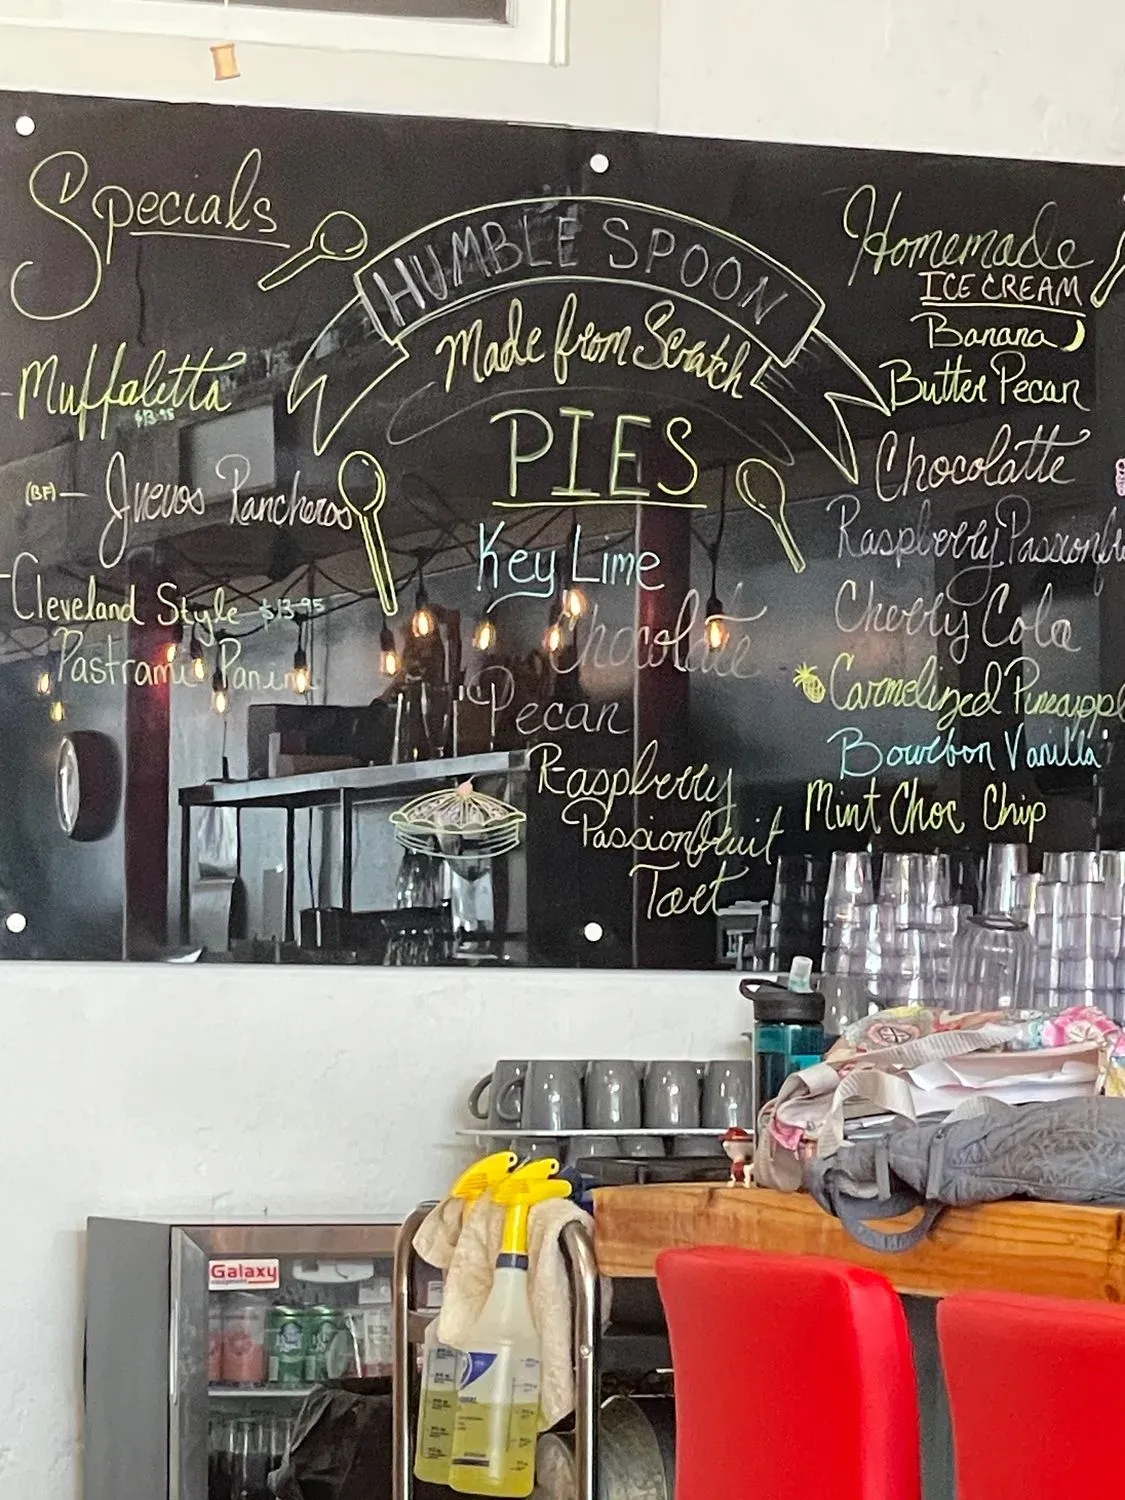 Specials
Muffaletta
$13.95
(BF) — Juevos Rancheros
Cleveland Style $13.95
Pastrami Panini
HUMBLE SPOON
Made from Scratch
PIES
Key Lime
Chocolate
Pecan
Raspberry
Passionfruit
Tart
Homemade
ICE CREAM
Banana
Butter Pecan
Chocolatte
Raspberry
Cherry Cola
Carmelized
Bourbon Vanilla
Mint Choc Chip
Galaxy